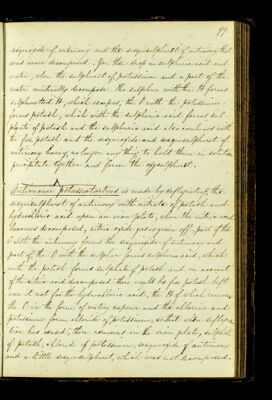 99.
sesquioxide of antimony and the sesquisulphuret of antimony that
was never decomposed. You then drop in sulphuric acid and
water, when the sulphuret of potassium and a part of the
water mutually decompose. the sulphur with the H forms
sulphuretted H, which escapes, the O with the potassium
forms potash, which with the sulphuric acid forms sul-
phate of potash and the sulphuric acid also combines with
the free potash and the sesquioxide and sesquisulphuret of
antimony having no longer any thing to hold them in solution
precipitate together and form the oxysulphuret.
Antimonii Potassio tartras is made by deflagrating the
sesquisulphuret of antimony with nitrate of potash and
hydrochloric acid upon an iron plate, when the nitric acid
becomes decomposed, nitric oxide gas is given off part of the
O with the antimony forms the sesquioxide of antimony and
part of the O with the sulphur forms sulphuric acid, which
with the potash forms sulphate of potash and on account
of the nitric acid decomposed there would be free potash left
were it not for the hydrochloric acid, the H of which removes
the O in the form of watery vapour and the chlorine and
potassium form chloride of potassium, so that when deflagra-
tion has ceased, there remains on the iron plate, sulphate
of potash, chloride of potassium, sesquioxide of antimony
and a little sesquisulphuret, which was not decomposed.